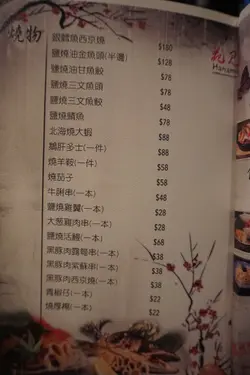 燒物
銀鱈魚西京燒 $180
鹽燒油金魚頭(半邊) $128
鹽燒油甘魚鮫 $78
鹽燒三文魚頭 $78
鹽燒三文魚鮫 $48
鹽燒鯖魚 $78
北海燒大蝦 $88
鵝肝多士(一件) $88
燒羊鞍(一件) $58
燒茄子 $58
牛脷串(一本) $48
鹽燒雞翼(一本) $28
大葱雞肉串(一本) $28
鹽燒活鰻(一本) $68
黑豚肉露筍串(一本) $38
黑豚肉紫蘇串(一本) $38
黑豚肉西京燒(一本) $38
青椒仔(一本) $22
燒厚棉(一本) $22